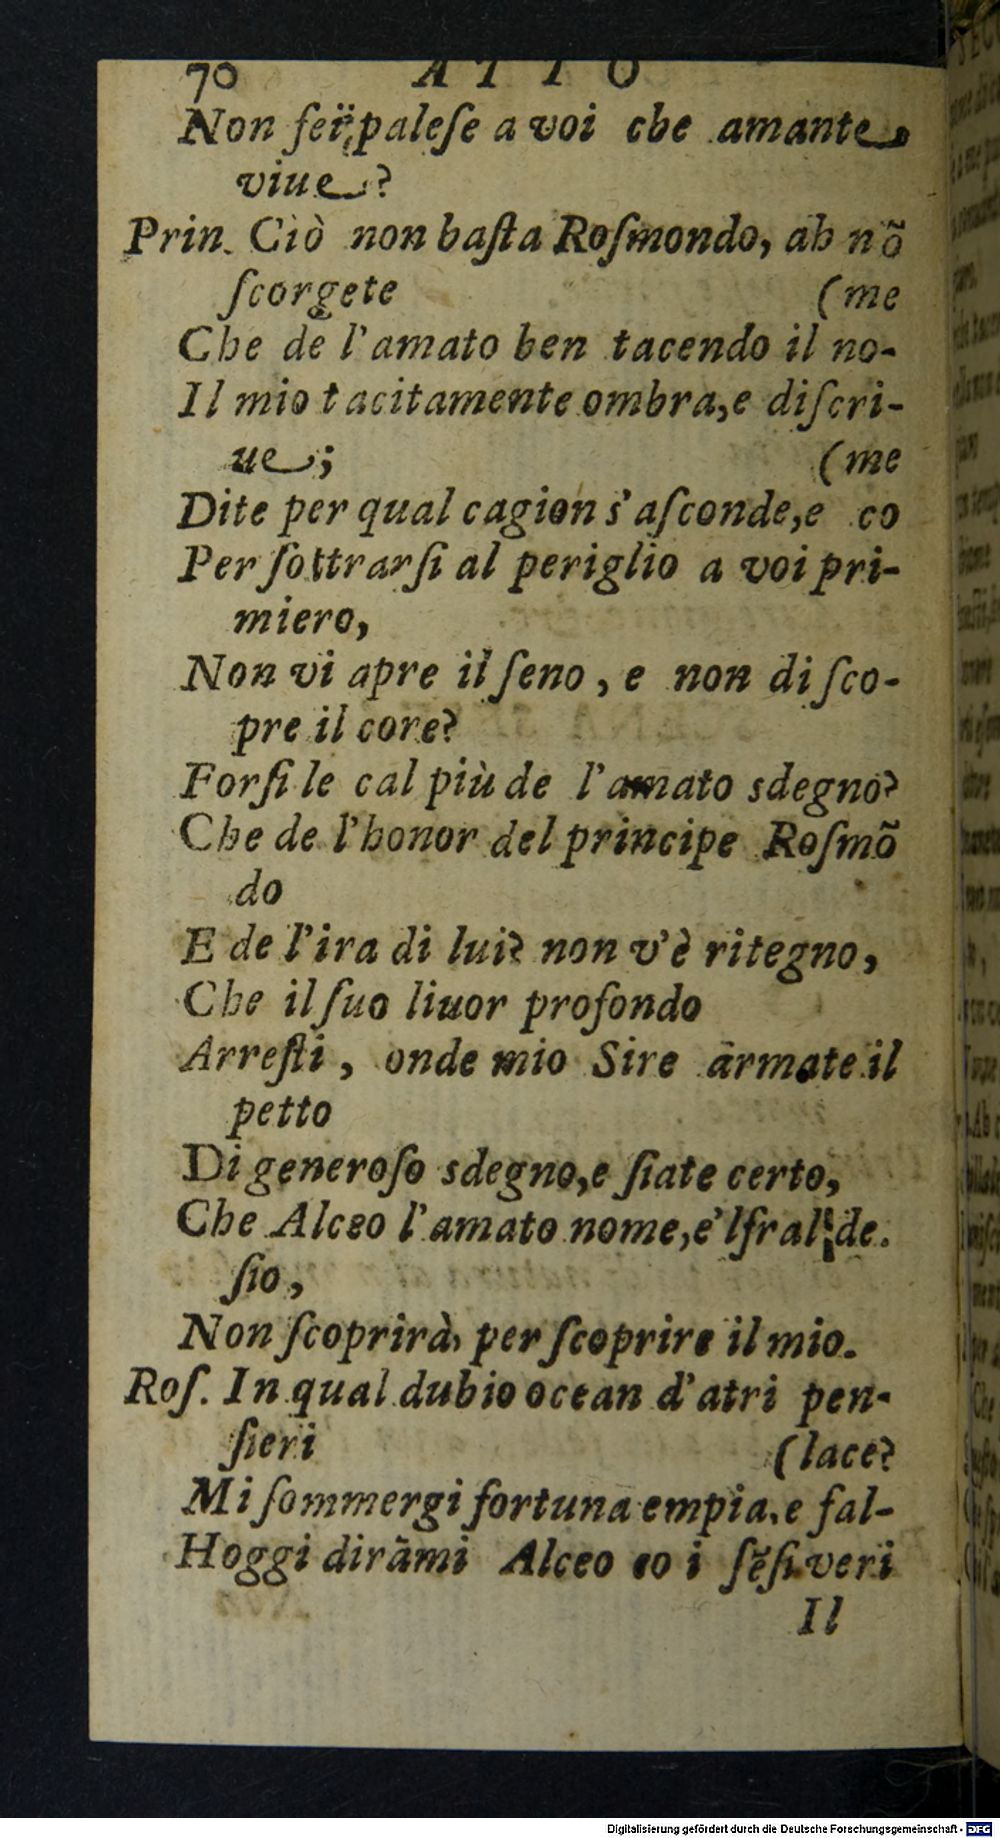 70 ATTO
Non feù palese a voi che amante
viue?
Prin. Ciò non basta Rosmondo, ah nõ
scorgete (me
Che de l'amato ben tacendo il no-
Il mio tacitamente ombra, e discri-
ue; (me
Dite per qual cagion s'asconde, e co
Per sottrarsi al periglio a voi pri-
miero,
Non vi apre il seno, e non disco-
pre il core?
Forsi le cal più de l'amato sdegno?
Che de l'honor del principe Rosmõ
do
E de l'ira di lui? non v'è ritegno,
Che il suo liuor profondo
Arresti, onde mio Sire armate il
petto
Di generoso sdegno, e siate certo,
Che Alceo l'amato nome, e'l fral de.
sio,
Non scoprirà, per scoprire il mio.
Ros. In qual dubio ocean d'atri pen-
sieri (lace?
Mi sommergi fortuna empia, e fal-
Hoggi dirãmi Alceo co i sẽsi veri
Il
Digitalisierung gefördert durch die Deutsche Forschungsgemeinschaft - DFG